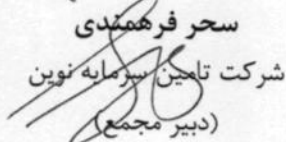 سحر فرهمندی
شرکت تامین سرمایه نوین
(دبیر مجمع)